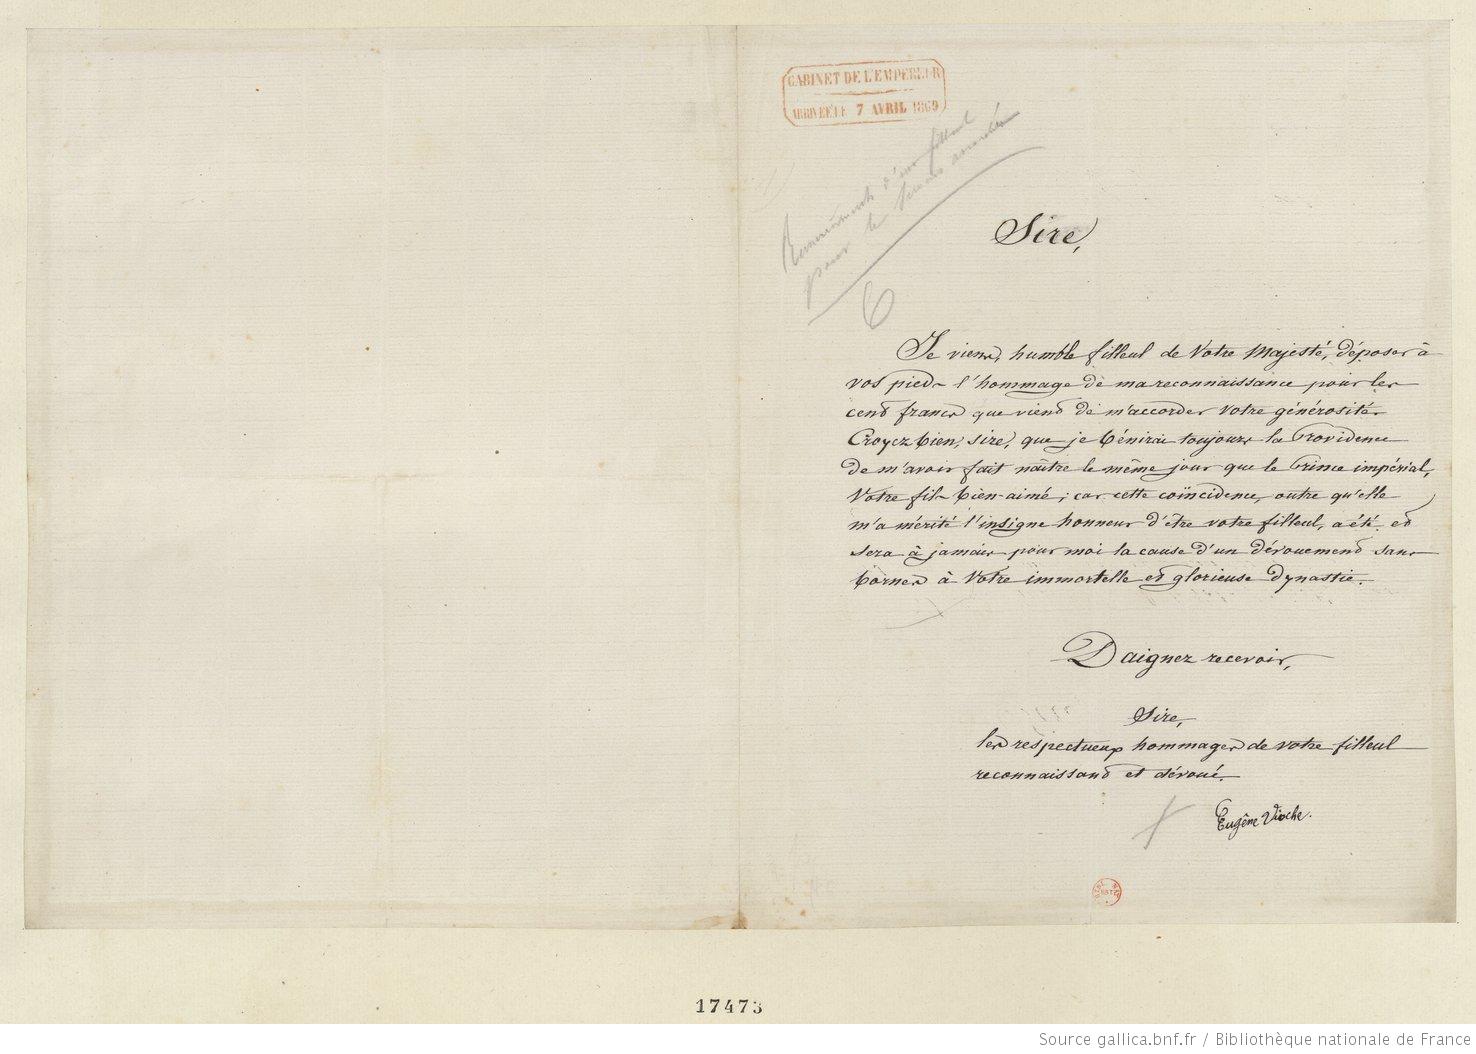 CABINET DE L'EMPEREUR
ARRIVÉE LE 7 AVRIL 1869
Remerciements d'un filleul
pour le secours accordé
Sire,
Je viens, humble filleul de Votre Majesté, déposer à
vos pieds l'hommage de ma reconnaissance pour les
cent francs que vient de m'accorder Votre générosité.
Croyez bien, Sire, que je bénirai toujours la Providence
de m'avoir fait naître le même jour que le Prince impérial,
Votre fils bien-aimé ; car cette coïncidence, outre qu'elle
m'a mérité l'insigne honneur d'être votre filleul, a été et
sera à jamais pour moi la cause d'un dévouement sans
bornes à Votre immortelle et glorieuse dynastie.
Daignez recevoir,
Sire,
les respectueux hommages de votre filleul
reconnaissant et dévoué.
Eugène Vioche.
17473
Source gallica.bnf.fr / Bibliothèque nationale de France